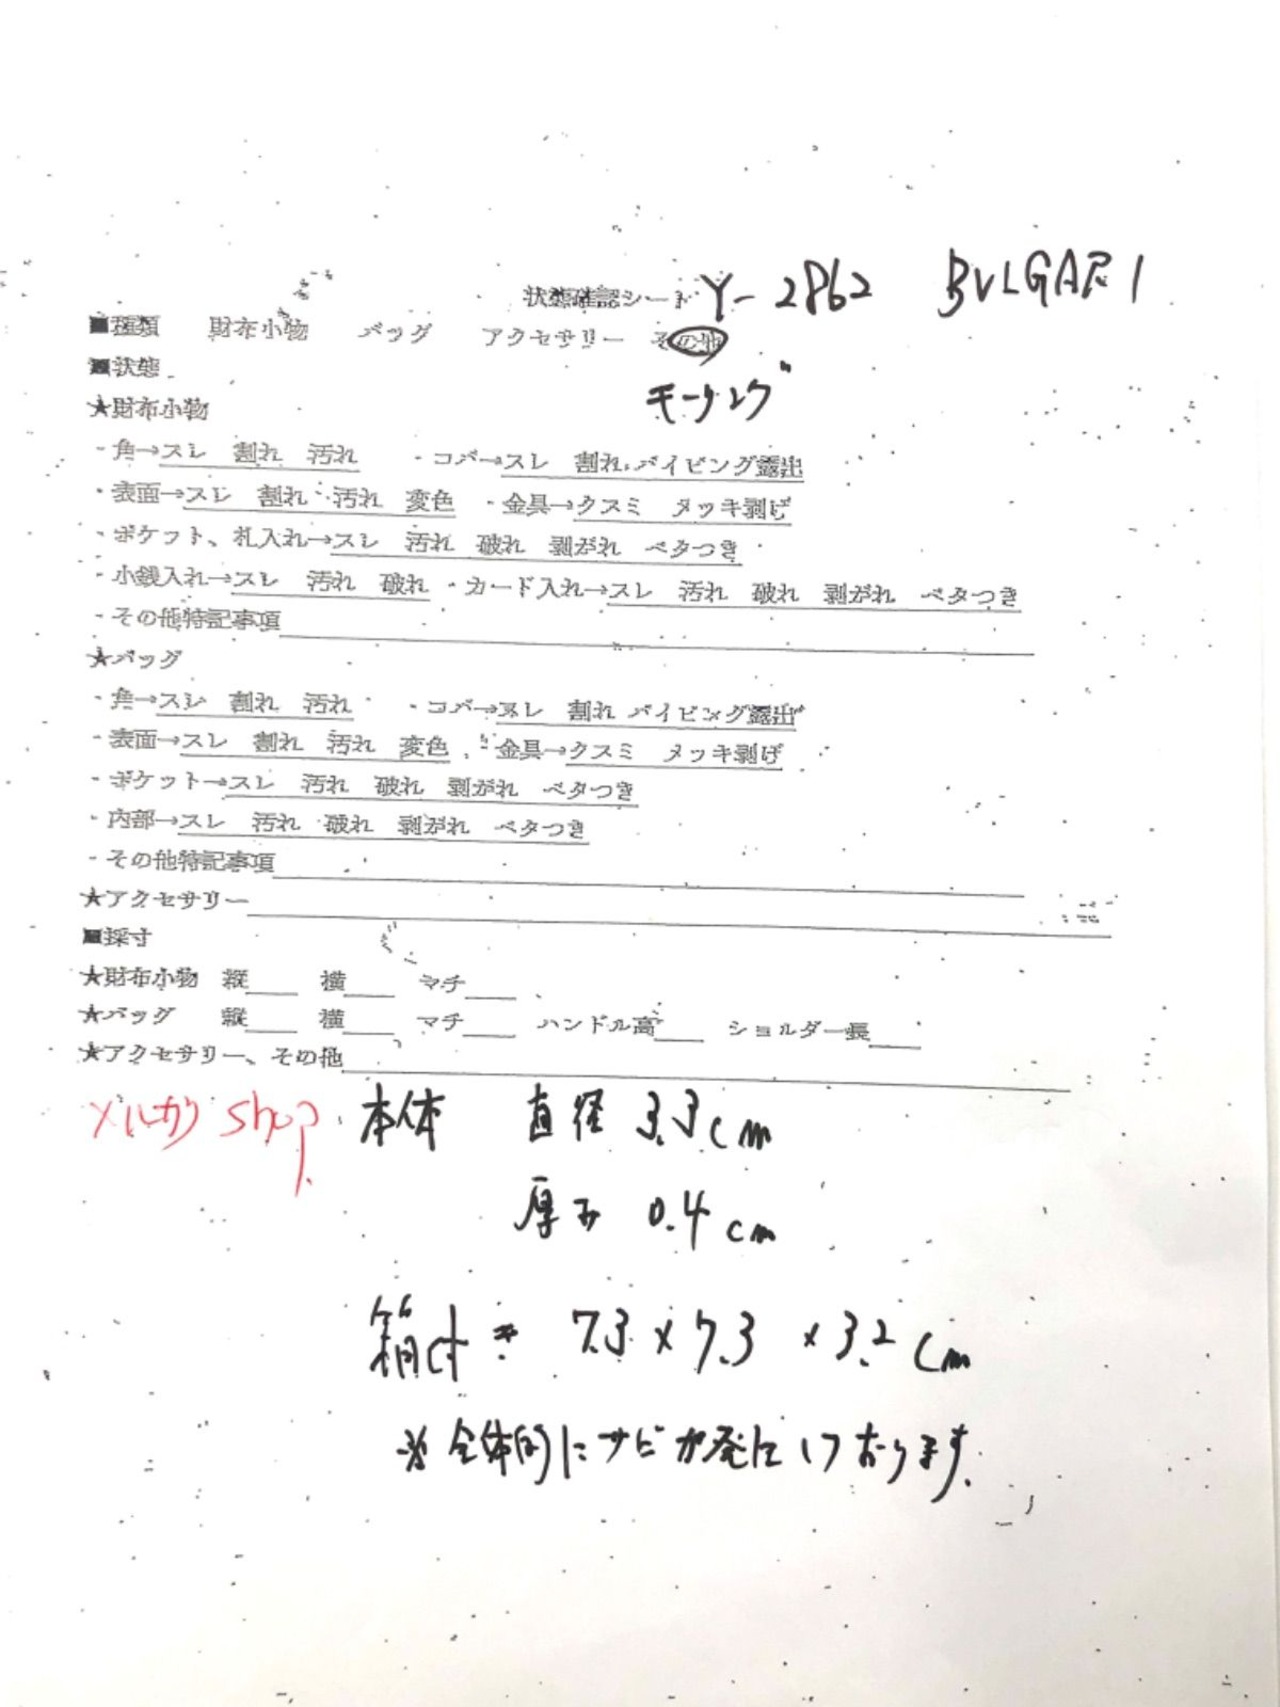 状態確認シート Y-2862 BVLGARI
■種類 財布小物 バッグ アクセサリー その他
■状態
★財布小物
・角→スレ 割れ 汚れ ・コバ→スレ 割れ パイピング露出
・表面→スレ 割れ 汚れ 変色 ・金具→クスミ メッキ剥げ
・ポケット、札入れ→スレ 汚れ 破れ 剥がれ ベタつき
・小銭入れ→スレ 汚れ 破れ ・カード入れ→スレ 汚れ 破れ 剥がれ ベタつき
・その他特記事項
★バッグ
・角→スレ 割れ 汚れ ・コバ→スレ 割れ パイピング露出
・表面→スレ 割れ 汚れ 変色 ・金具→クスミ メッキ剥げ
・ポケット→スレ 汚れ 破れ 剥がれ ベタつき
・内部→スレ 汚れ 破れ 剥がれ ベタつき
・その他特記事項
★アクセサリー
■採寸
★財布小物 縦 横 マチ
★バッグ 縦 横 マチ ハンドル高 ショルダー長
★アクセサリー、その他
メルカリ shop 本体 直径 3.3cm
厚み 0.4cm
箱付き 7.3×7.3×3.2cm
※全体的にサビが発生しております。